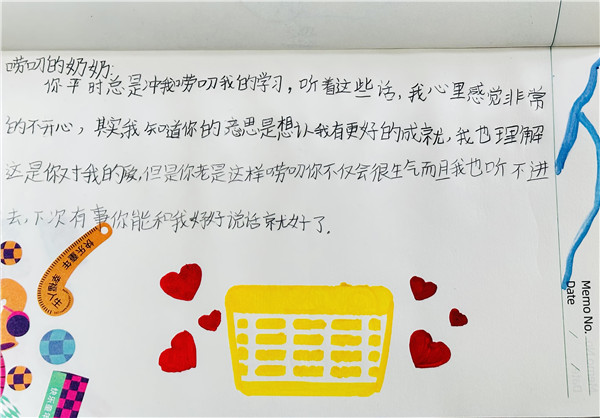 唠叨的奶奶:
你平时总是冲我唠叨我的学习，听着这些话，我心里感觉非常
的不开心，其实我知道你的意思是想让我有更好的成就，我也理解
这是你对我的爱，但是你老是这样唠叨你不仅会很生气而且我也听不进
去，下次有事你能和我好好说话就好了。
快乐童年 幸福人生
快乐童年
Memo No.
Date / /